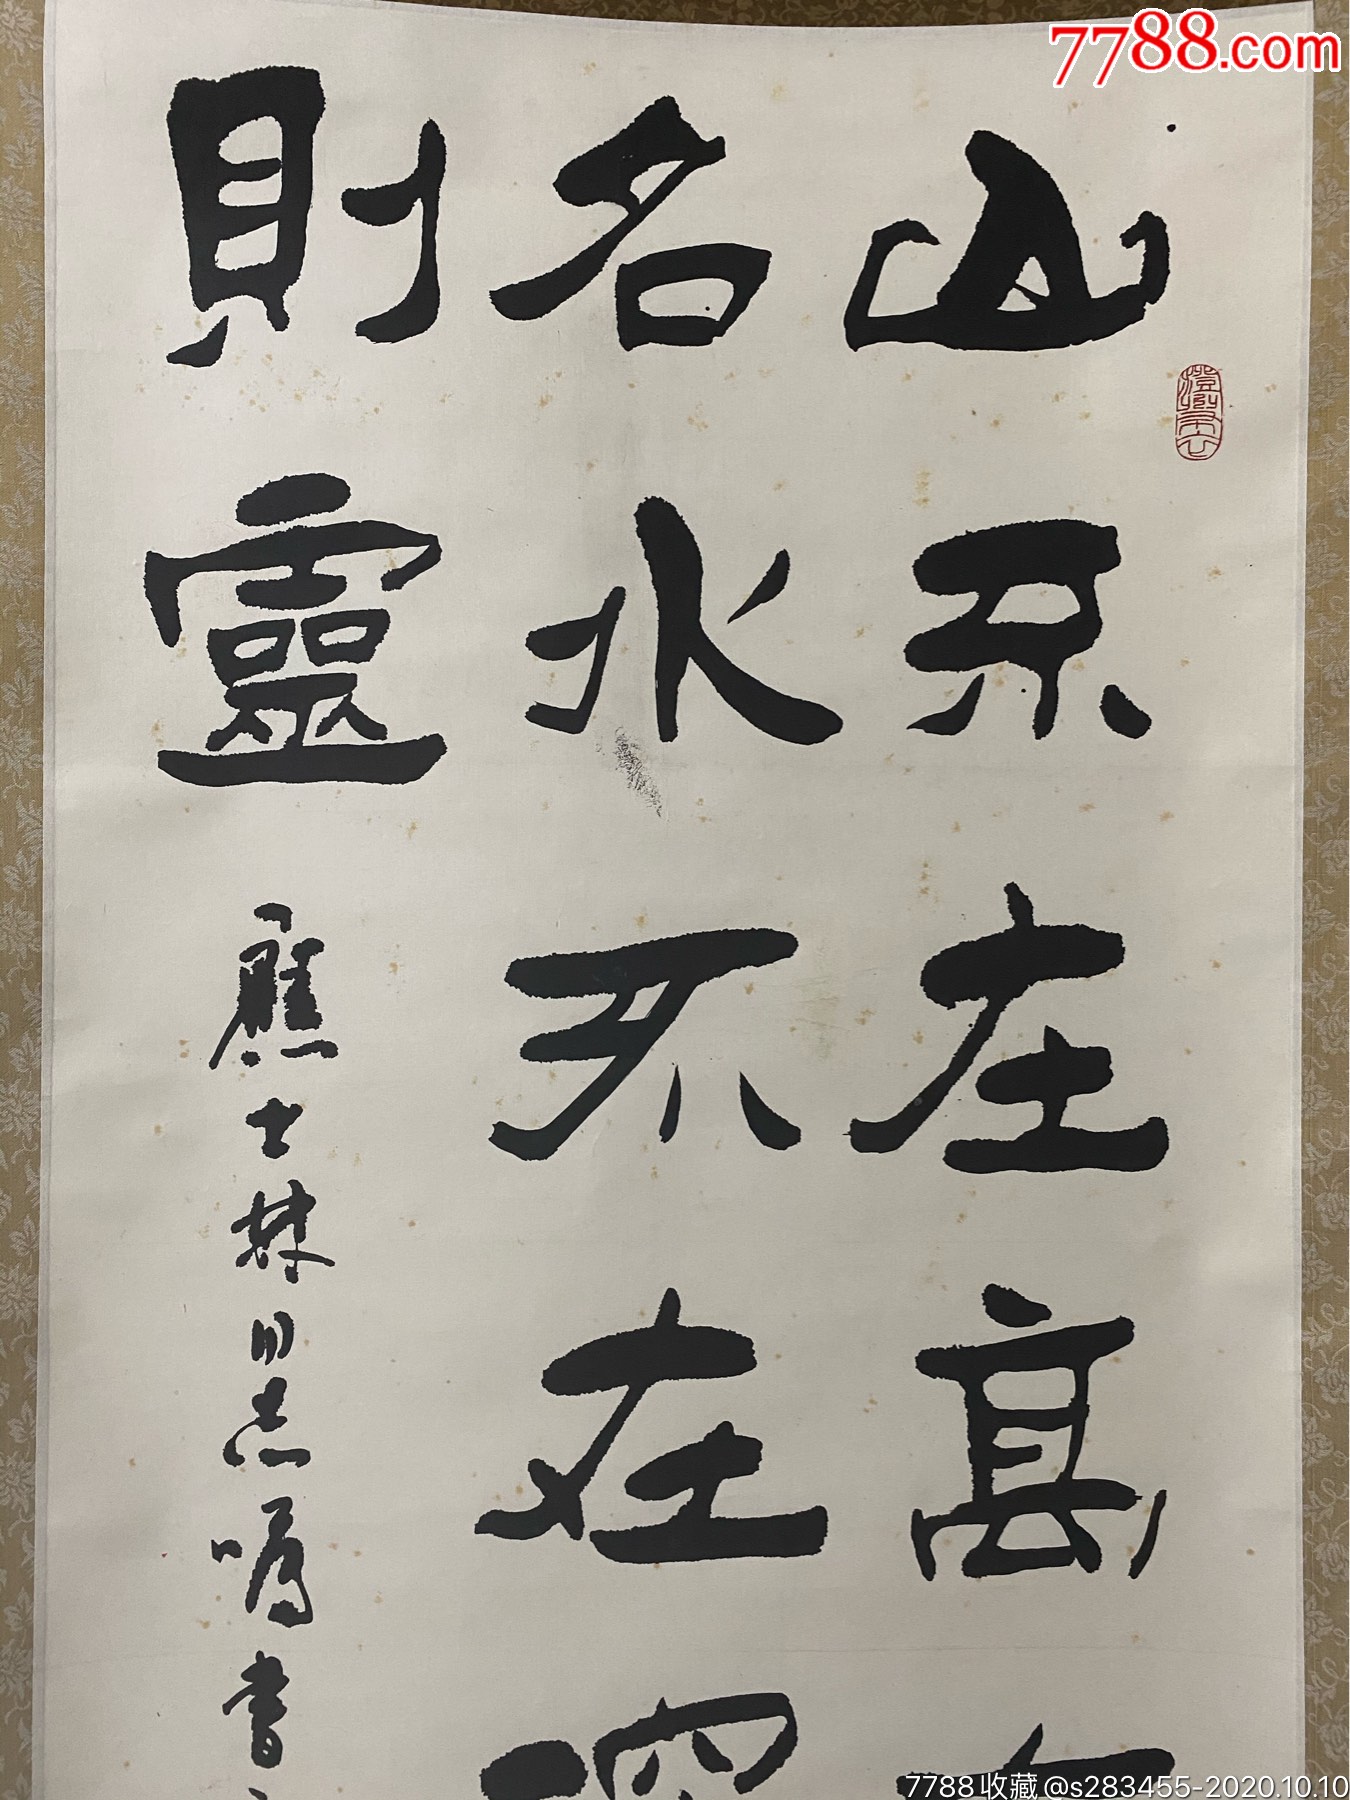 7788.com
山不在高有
名水不在深
則靈
應士林同志囑書
7788收藏@s283455-2020.10.10